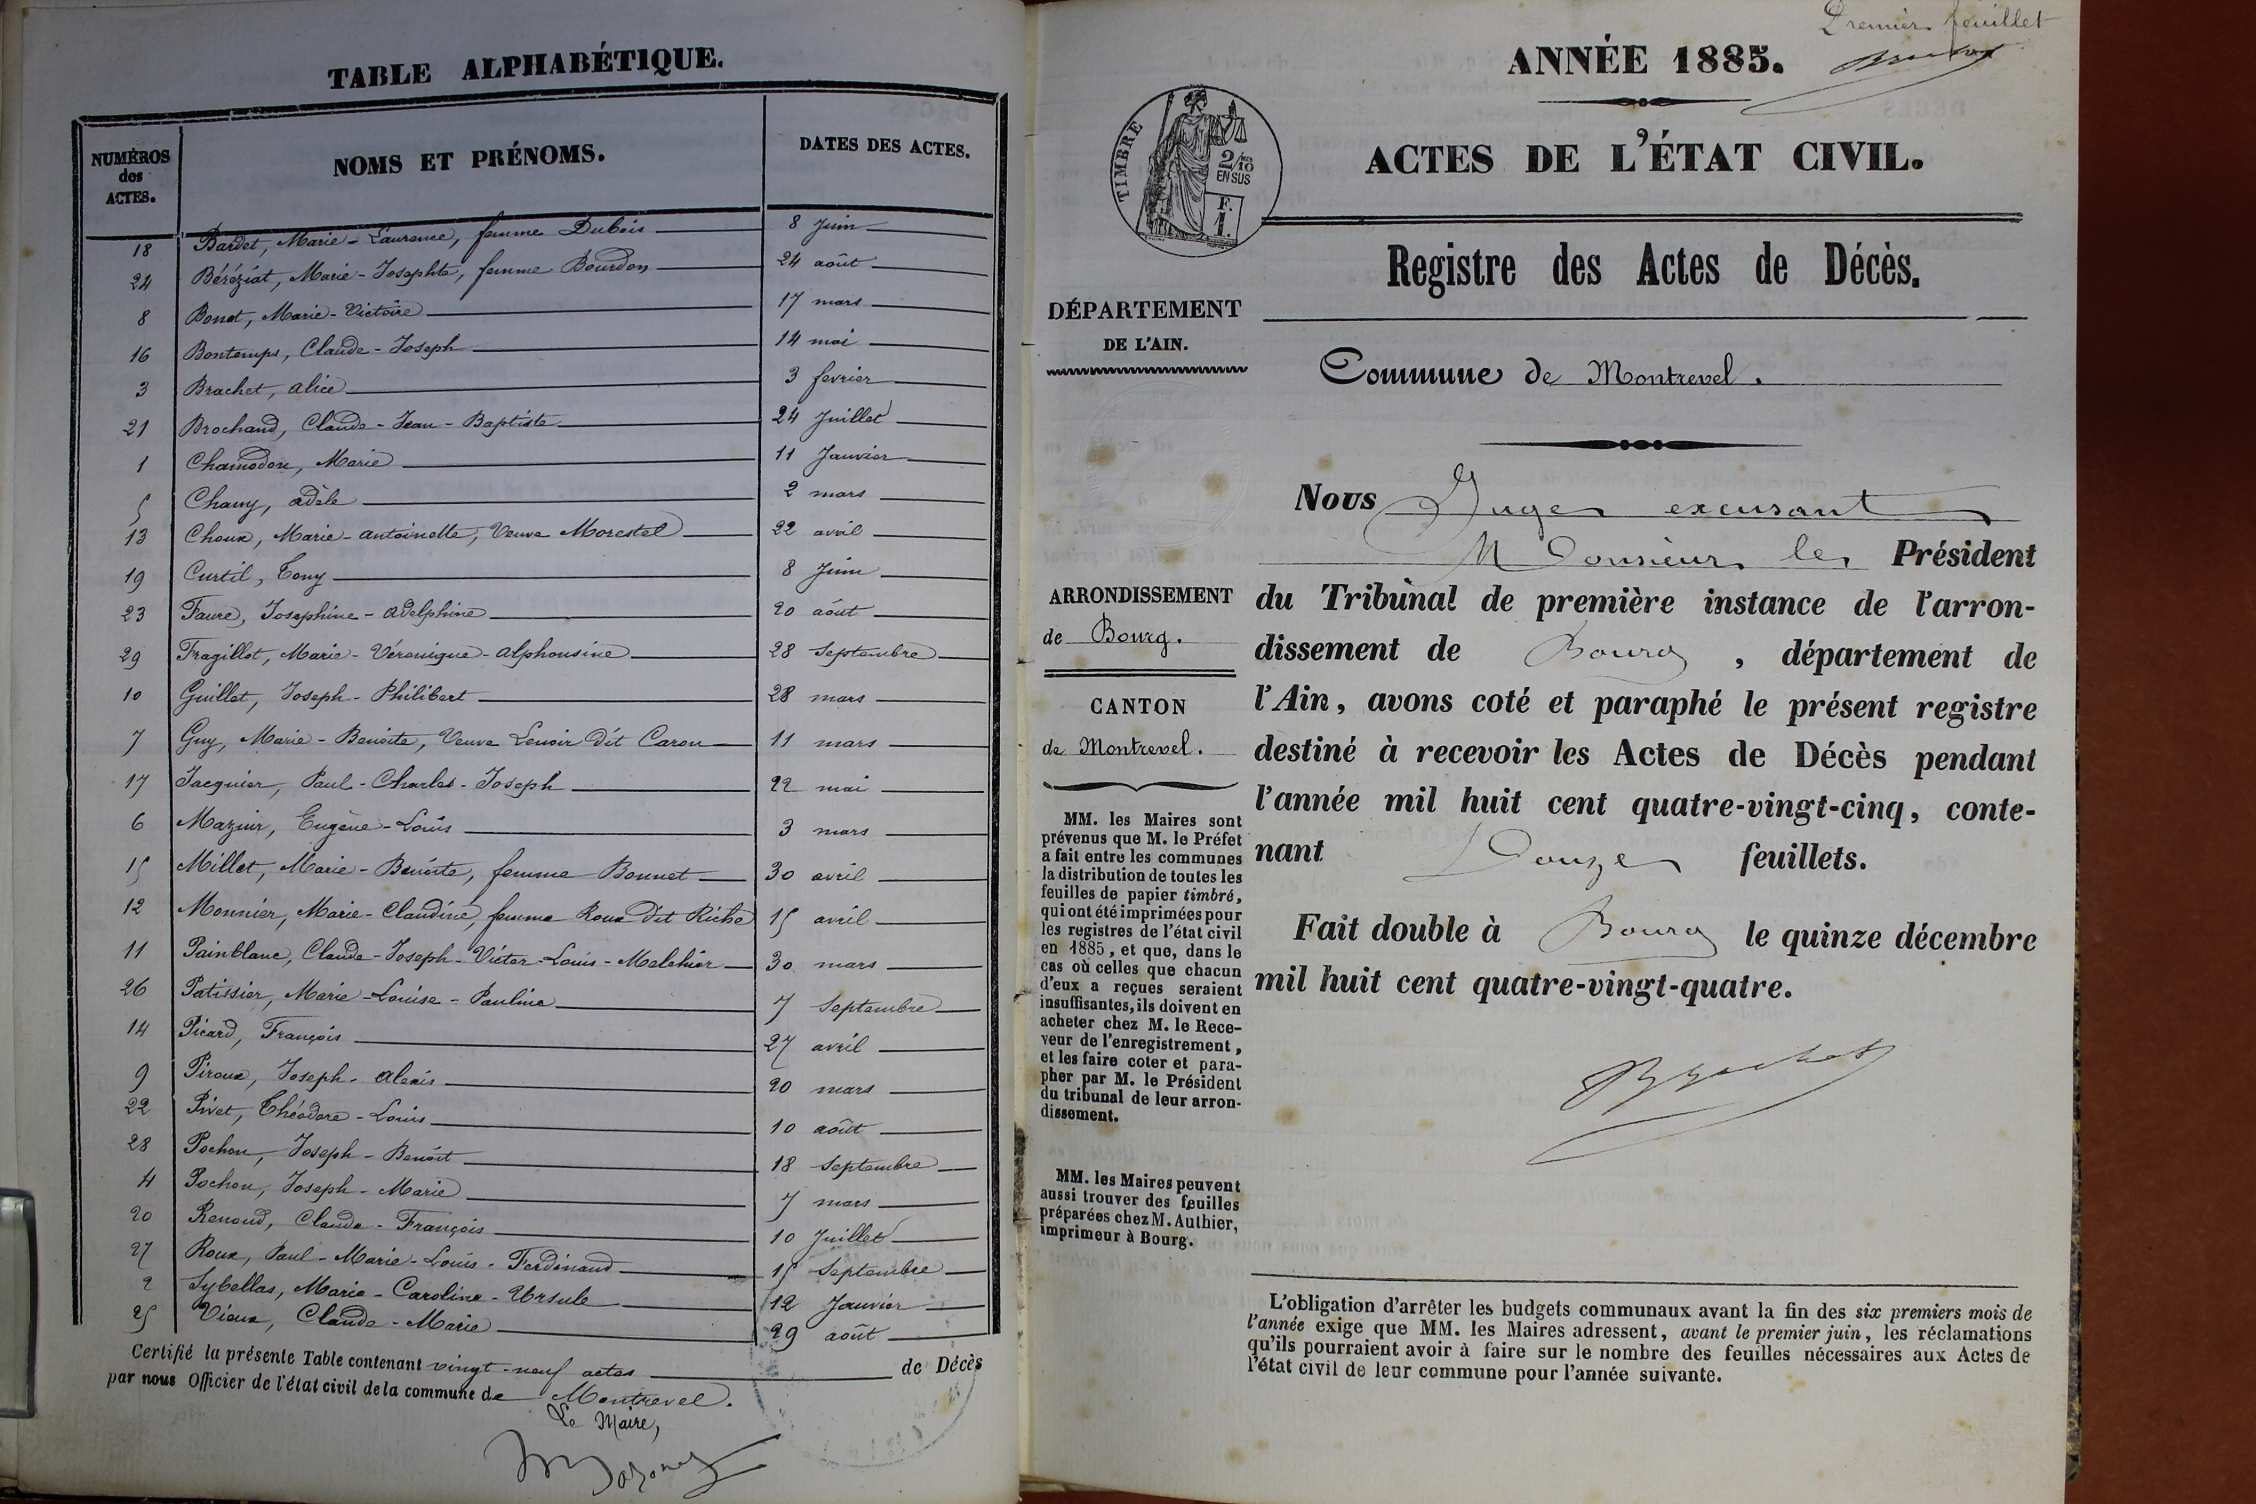 TABLE ALPHABÉTIQUE.
NUMÉROS des ACTES. NOMS ET PRÉNOMS. DATES DES ACTES.
18 Bardet, Marie-Laurence, femme Dubois 8 Juin
24 Béréziat, Marie-Josephte, femme Bourdon 24 août
8 Bonet, Marie-Victoire 17 mars
16 Bontemps, Claude-Joseph 14 mai
3 Brachet, alice 3 fevrier
21 Brochand, Claude-Jean-Baptiste 24 Juillet
1 Chamodon, Marie 11 Janvier
5 Chany, adèle 2 mars
13 Choux, Marie-antoinette, Veuve Morestel 22 avril
19 Curtil, Tony 8 Juin
23 Faure, Josephine-adelphine 20 août
29 Fragillot, Marie-Véronique-alphonsine 28 Septembre
10 Guillet, Joseph-Philibert 28 mars
7 Guy, Marie-Benoite, Veuve Lenoir dit Caron 11 mars
17 Jacquier, Paul-Charles-Joseph 22 mai
6 Mazuir, Eugène-Louis 3 mars
15 Millet, Marie-Benoîte, femme Bonnet 30 avril
12 Monnier, Marie-Claudine, femme Roux dit Riche 15 avril
11 Painblanc, Claude-Joseph-Victor-Louis-Melchior 30 mars
26 Patissier, Marie-Louise-Pauline 7 Septembre
14 Picard, François 27 avril
9 Piroux, Joseph-alexis 20 mars
22 Pivet, Théodore-Louis 10 août
28 Pochon, Joseph-Benoit 18 Septembre
4 Pochon, Joseph-Marie 7 mars
20 Renoud, Claude-François 10 Juillet
27 Roux, Paul-Marie-Louis-Ferdinand 15 Septembre
2 Sybellas, Marie-Caroline-Ursule 12 Janvier
25 Vieux, Claude-Marie 29 août
Certifié la présente Table contenant vingt-neuf actes de Décès
par nous Officier de l'état civil de la commune de Montrevel.
Le Maire,
Premier feuillet
ANNÉE 1885.
TIMBRE
2/10 EN SUS
F. 1.
ACTES DE L'ÉTAT CIVIL.
Registre des Actes de Décès.
DÉPARTEMENT
DE L'AIN.
Commune de Montrevel.
ARRONDISSEMENT
de Bourg.
CANTON
de Montrevel.
MM. les Maires sont
prévenus que M. le Préfet
a fait entre les communes
la distribution de toutes les
feuilles de papier timbré,
qui ont été imprimées pour
les registres de l'état civil
en 1885, et que, dans le
cas où celles que chacun
d'eux a reçues seraient
insuffisantes, ils doivent en
acheter chez M. le Rece-
veur de l'enregistrement,
et les faire coter et para-
pher par M. le Président
du tribunal de leur arron-
dissement.
MM. les Maires peuvent
aussi trouver des feuilles
préparées chez M. Authier,
imprimeur à Bourg.
Nous Juge excusant
Monsieur le Président
du Tribunal de première instance de l'arron-
dissement de Bourg, département de
l'Ain, avons coté et paraphé le présent registre
destiné à recevoir les Actes de Décès pendant
l'année mil huit cent quatre-vingt-cinq, conte-
nant Douze feuillets.
Fait double à Bourg le quinze décembre
mil huit cent quatre-vingt-quatre.
L'obligation d'arrêter les budgets communaux avant la fin des six premiers mois de
l'année exige que MM. les Maires adressent, avant le premier juin, les réclamations
qu'ils pourraient avoir à faire sur le nombre des feuilles nécessaires aux Actes de
l'état civil de leur commune pour l'année suivante.